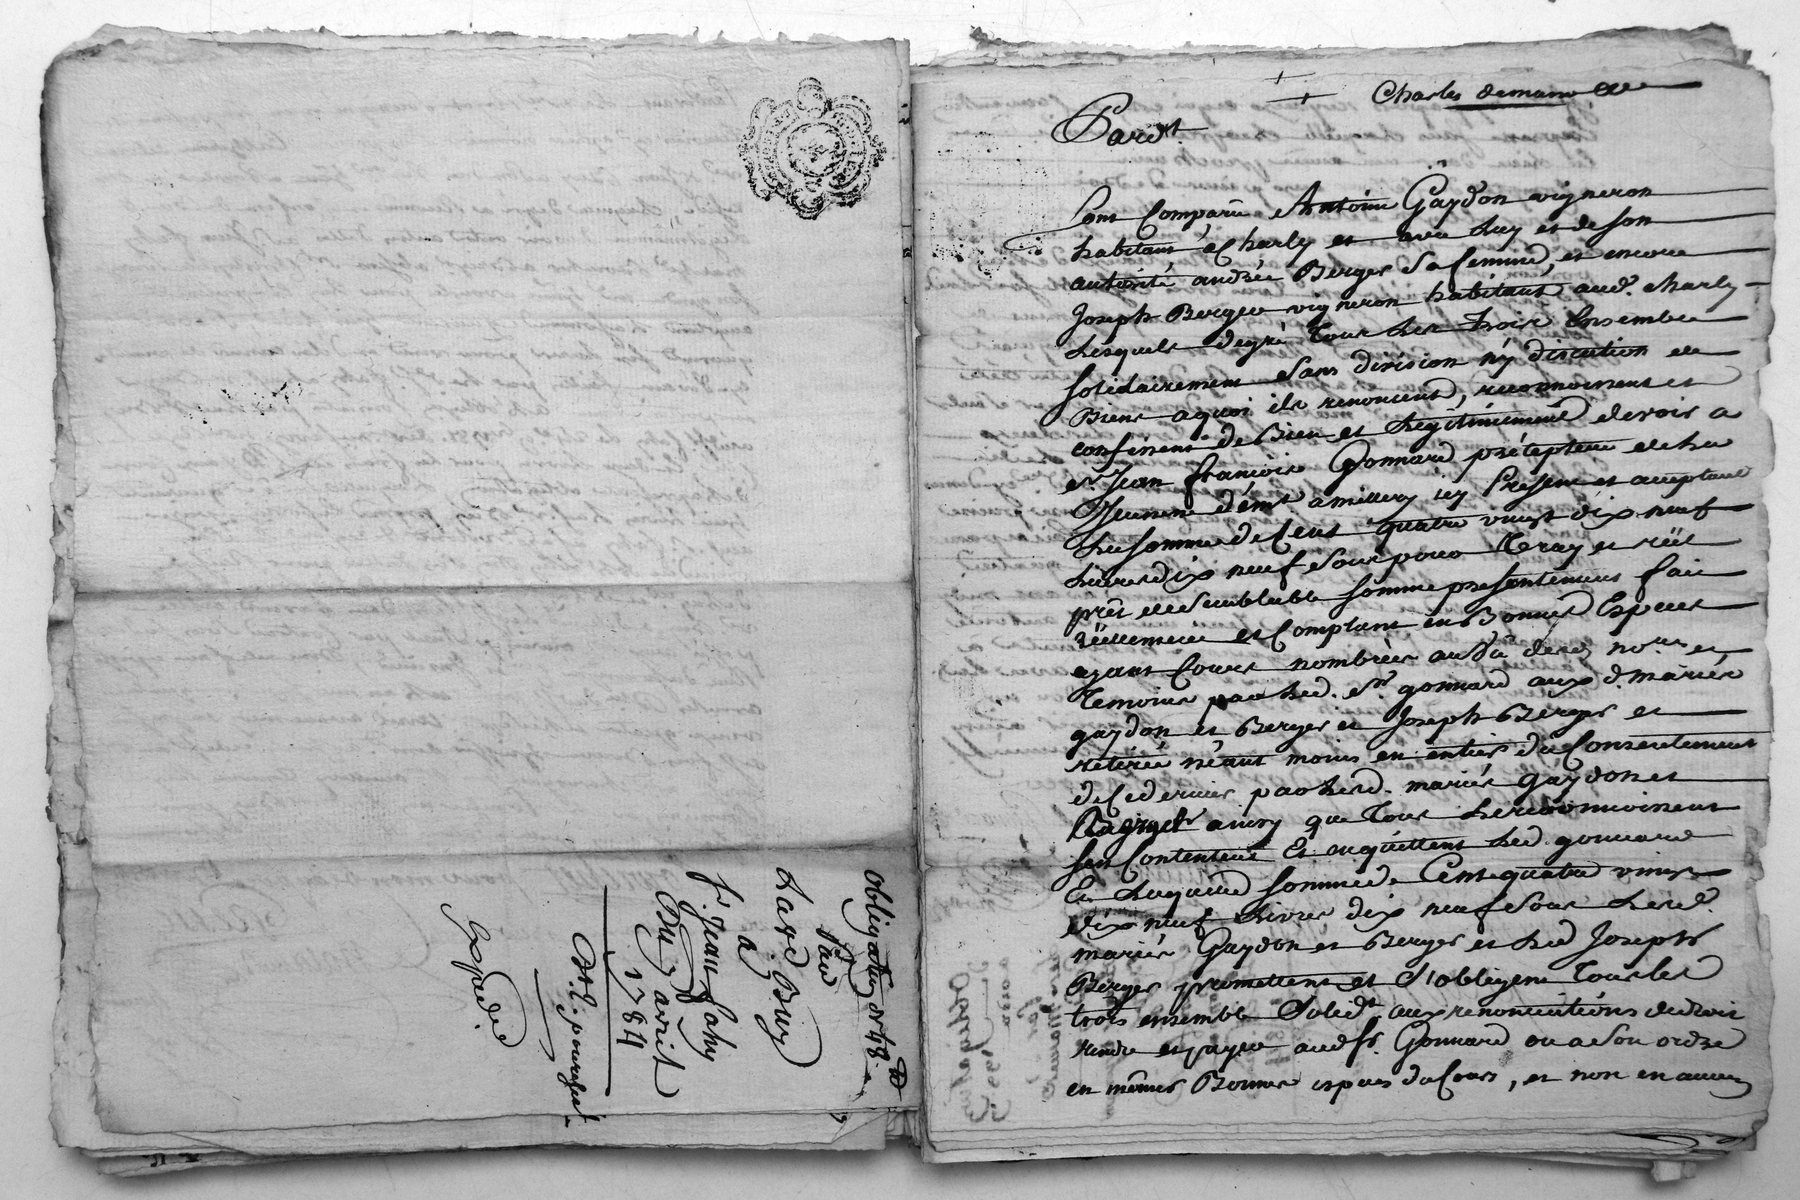 obligation de 48 tt
Par
Lavd. Buy
a
Sr. Jean fahy
Du 7 avril
1784
Expedié.
Charles demano
Pardt.
Sont Comparu Antoine Gaÿdon vigneron
habitant a Charly et avec luy et de son
autorité andrée Berger Sa femme, et encore
Joseph Berger vigneron habitant audt. charly
Lesquels degré Tous Les Trois Ensemble
solidairement Sans division ny discution de
Biens a quoi ils renoncent, reconnoissent et
confessent de Bien et Légitimement devoir a
sr. Jean françois Gonnard précepteur de La
Jeunesse demt. a millery icy Present et acceptant
La somme de Cent quatre vingt dix neuf
Livres dix neuf Sous pour Vray et réel
prêt de Semblable somme presentement fait
réellement et Comptant en Bonnes Especes
ayant Cours nombrées au vû desd. nores. et
Temoins par Led. Sr. gonnard aux d. mariés
gaydon et Berger et Joseph Berger et
retirée néant moins en entier du Consentement
de Ce dernier par Lesd. mariés Gaydon et
Berger ainsy que Tous Le reconnoissent
sen Contentent Et acquittent Led. gonnard
Et Laquelle somme de Cent quatre vingt
dix neuf Livres dix neuf Sous Lesd.
mariés Gaydon et Berger et Led. Joseph
Berger promettent et S'obligent Tous les
trois ensemble Solidt. aux renonciations de droit
rendre et payer aud. sr. Gonnard ou a Son ordre
en mêmes Bonnes especes du Cours, et non en aucun